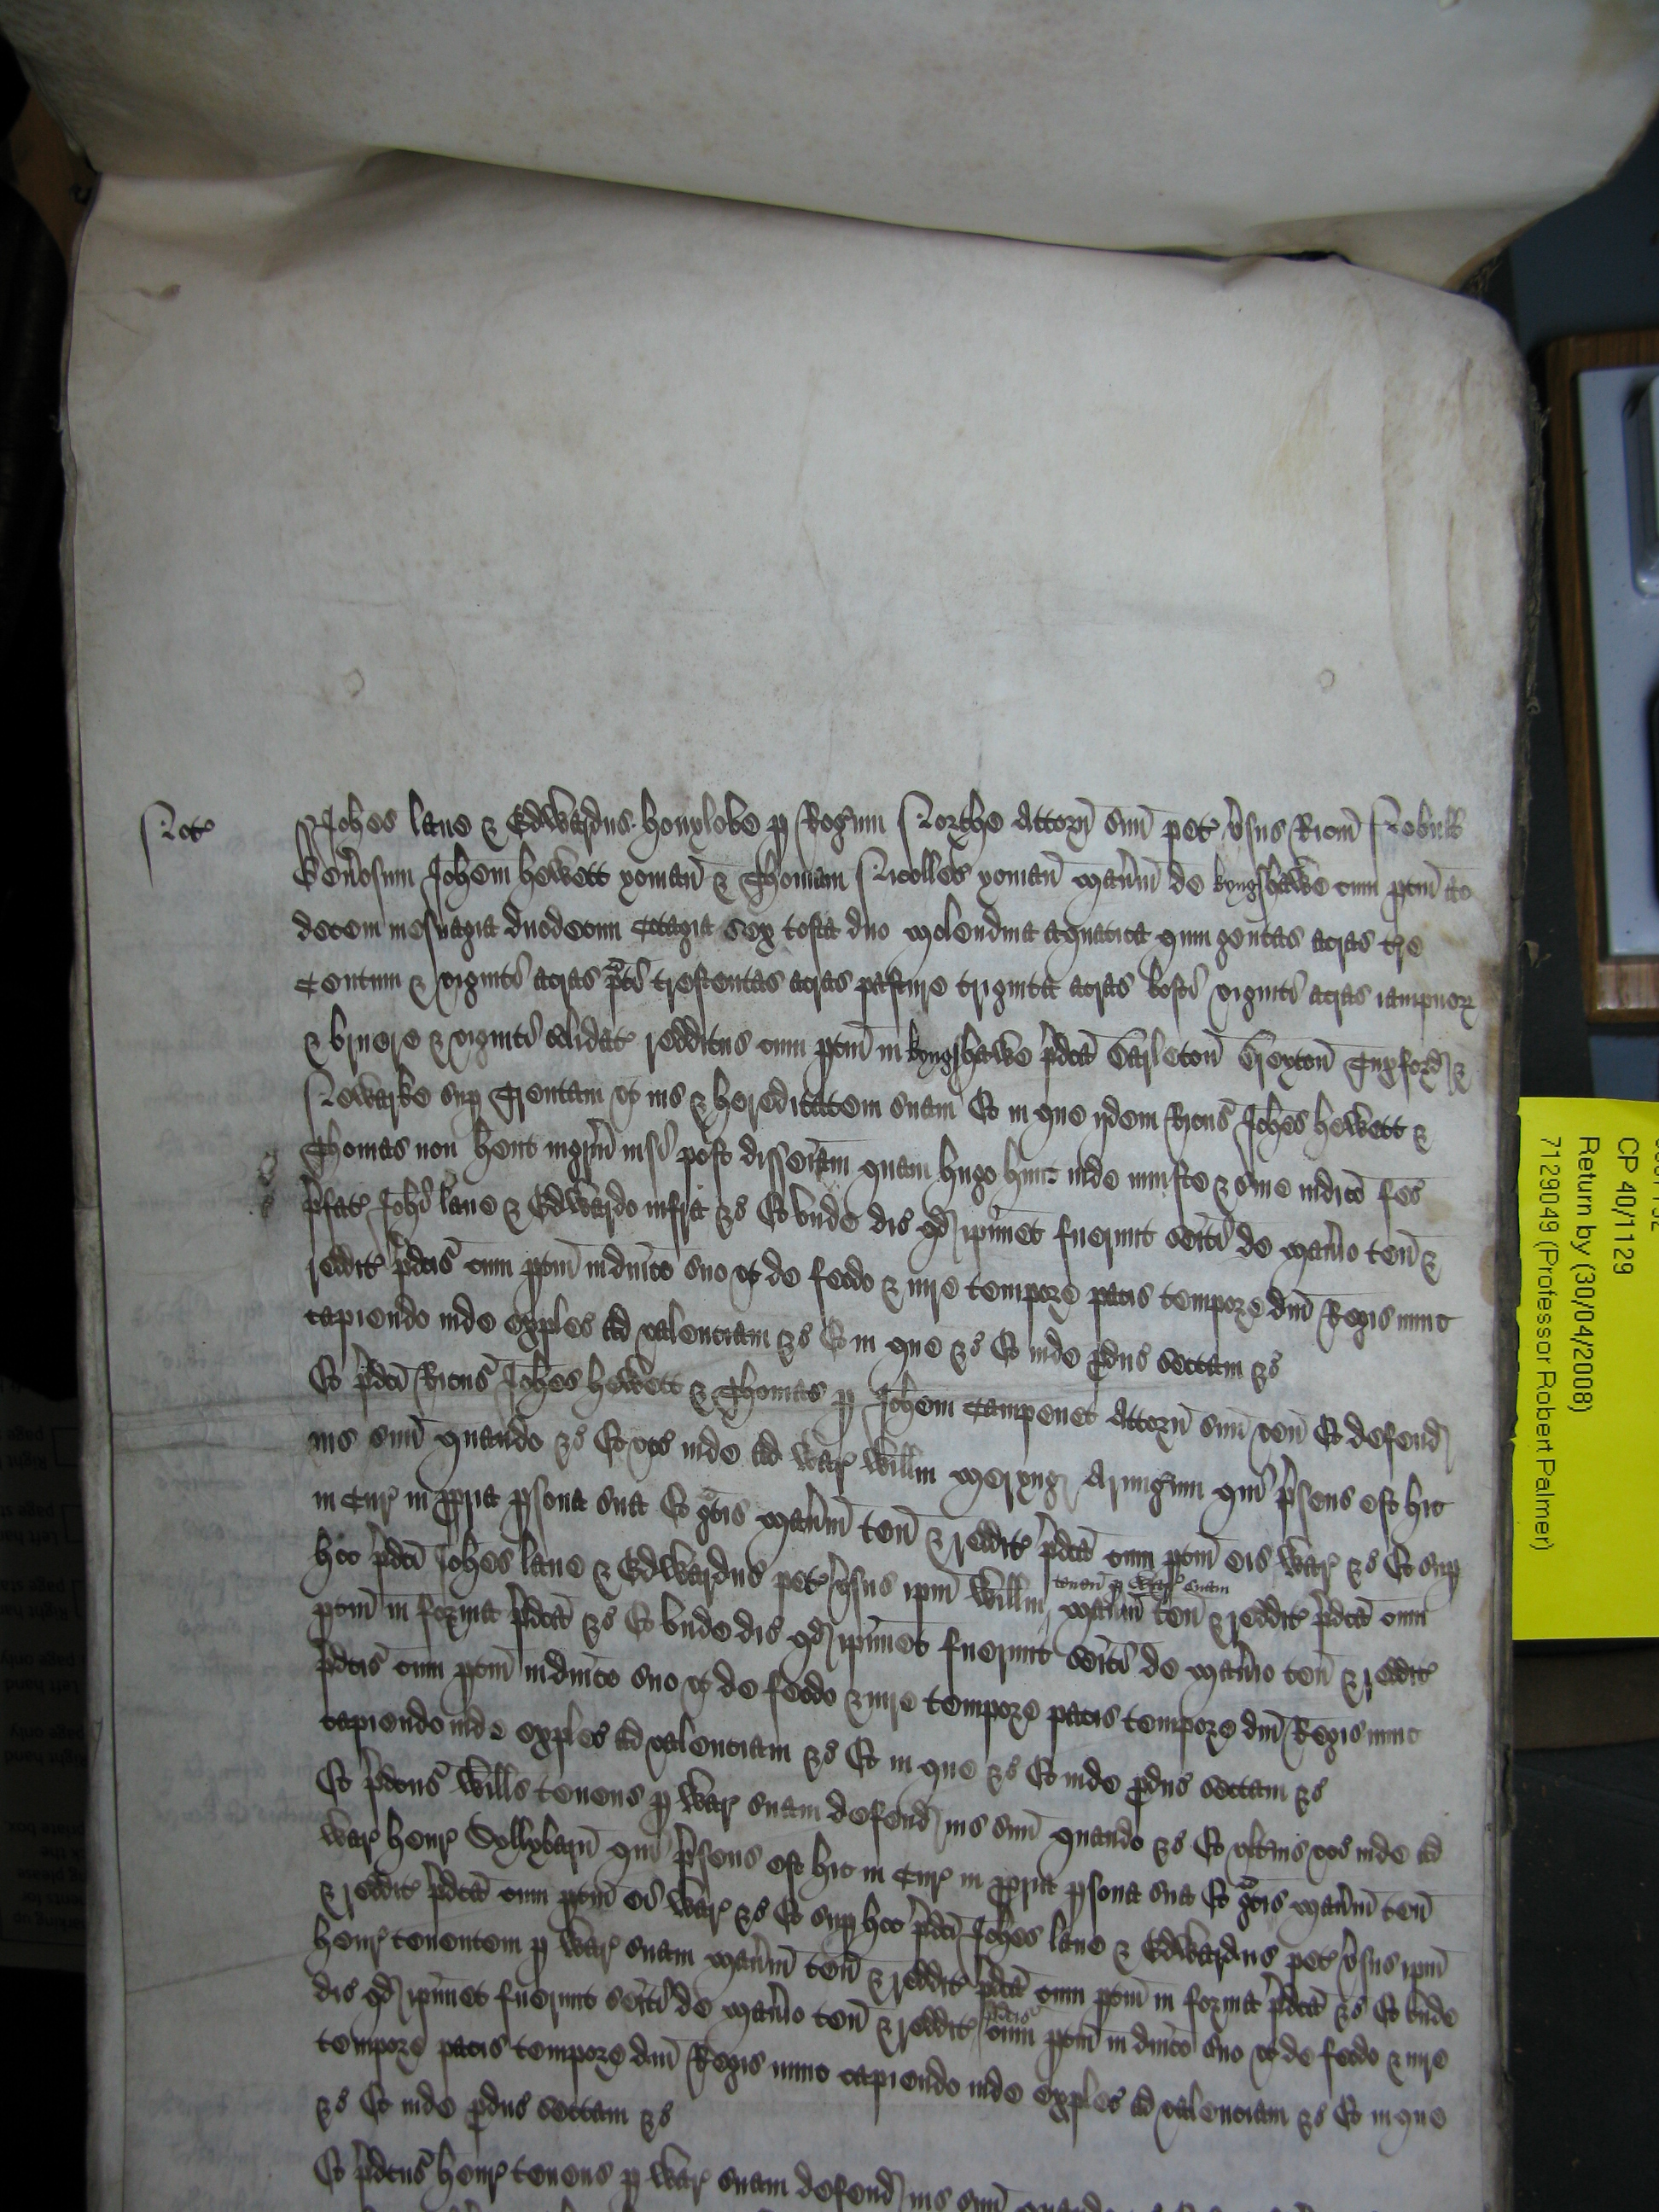 Nott
Johes lane & Edwardus honylove p Rogum Northe Attorn suu pet vsus Ricm Nevill
Genosum Johem hewett yoman & Thomam Nicolles yoman maniu de kyngshawe cum ptin ac
decem mesuagia duodecim Cotagia sex tofta duo molendina aquatica quingentas acras tre
Centum & viginti acras pti trescentas acras pasture triginta acras bosci viginti acras iampnor
& bruere & viginti solidat redditus cum ptin in kyngshawe pdca Carleton Greyton Tuxford &
Newarke sup Trentam vt ius & hereditatem suam Et in que ijdem Ricus Johes hewett &
Thomas non hent ingrm nisi post disseinam quam hugo hunt inde iniuste & sine iudico fec
pfat Johi lane & Edwardo infra &c Et vnde dic qd ipimet fuerunt seiti de manio ten &
reddit pdcis cum ptin in dnico suo vt de feodo & iure tempore pacis tempore dni Regis nunc
capiendo inde exples ad valenciam &c Et in que &c Et inde pduc sectam &c
Et pdci Ricus Johes hewett & Thomas p Johem Campenet Attorn suu ven Et defend
ius suu quando &c Et voc inde ad War Willm meryng Armigum qui psens est hic
in Cur in ppria psona sua Et gtis maniu ten & reddit pdca cum ptin eis War &c Et sup
hoc pdci Johes lane & Edwardus pet vsus ipm Willm tenen p War suam maniu ten & reddit pdca cum
ptin in forma pdca &c Et vnde dic qd ipimet fuerunt seiti de manio ten & reddit
pdcis cum ptin in dnico suo vt de feodo & iure tempore pacis tempore dni Regis nunc
capiendo inde exples ad valenciam &c Et in que &c Et inde pduc sectam &c
Et pdcus Wills tenens p War suam defend ius suu quando &c Et vltius voc inde ad
War henr qui psens est hic in Cur in ppria psona sua Et gtis maniu ten
& reddit pdca cum ptin ei War &c Et sup hoc pdci Johes lane & Edwardus pet vsus ipm
henr tenentem p War suam maniu ten & reddit pdca cum ptin in forma pdca &c Et vnde
dic qd ipimet fuerunt seiti de manio ten & reddit pdcis cum ptin in dnico suo vt de feodo & iure
tempore pacis tempore dni Regis nunc capiendo inde exples ad valenciam &c Et in que
&c Et inde pduc sectam &c
Et pdcus henr tenens p War suam defend ius suu quando
CP 40/1129
Return by (30/04/2008)
7129049 (Professor Robert Palmer)